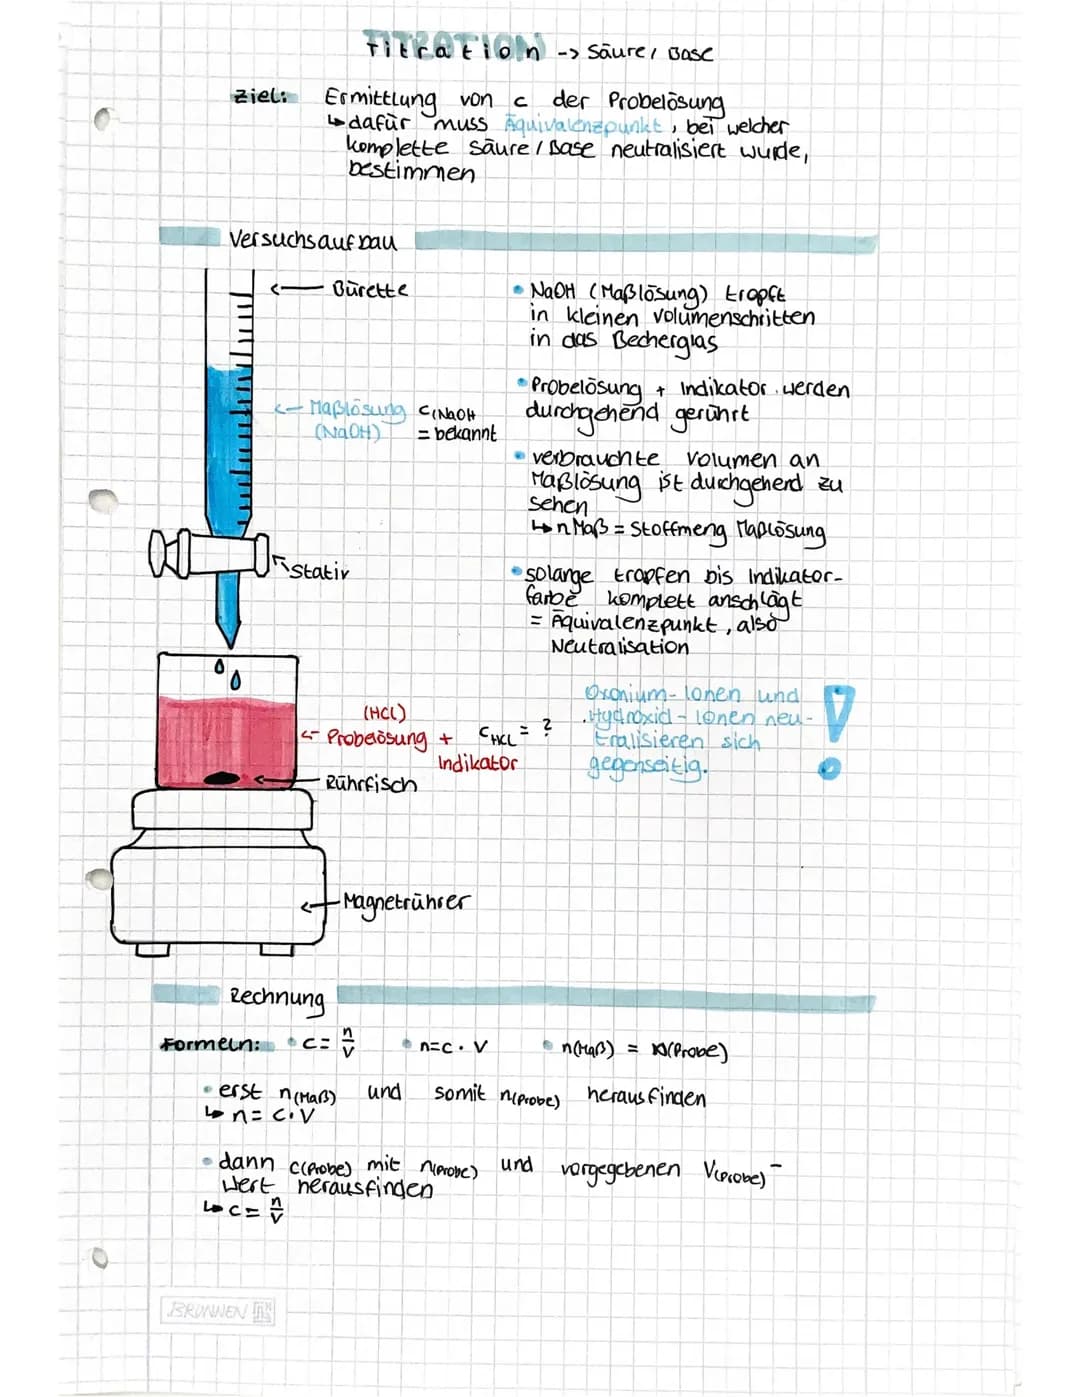 Titration -> Säure / Base
Ziel: Ermittlung von c der Probelösung
↳ dafür muss Äquivalenzpunkt, bei welcher
komplette Säure / Base neutralisiert wurde,
bestimmen
Versuchsaufbau
← Bürette
• NaOH (Maßlösung) tropft
in kleinen Volumenschritten
in das Becherglas
• Probelösung + Indikator werden
durchgehend gerührt
← Maßlösung c(NaOH
(NaOH) = bekannt
• verbrauchte Volumen an
Maßlösung ist durchgehend zu
sehen
↳ n Maß = Stoffmeng Maßlösung
Stativ
• solange tropfen bis Indikator-
farbe komplett anschlägt
= Äquivalenzpunkt, also
Neutralisation
(HCl)
← Probelösung + c HCL = ?
Indikator
Oxonium-Ionen und
Hydroxid-Ionen neu-
tralisieren sich
gegenseitig. !
← Rührfisch
← Magnetrührer
Rechnung
Formeln: • c = n/V • n = c · V • n(Maß) = n(Probe)
• erst n(Maß) und somit n(Probe) herausfinden
↳ n = c · V
• dann c(Probe) mit n(Probe) und vorgegebenen V(Probe)-
Wert herausfinden
↳ c = n/V
BRUNNEN